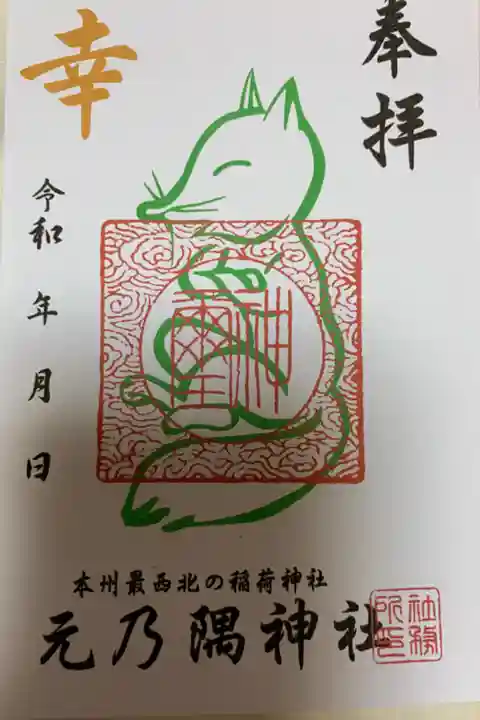 奉拝
幸
神璽
令和 年 月 日
本州最西北の稲荷神社
元乃隅神社
社務所印